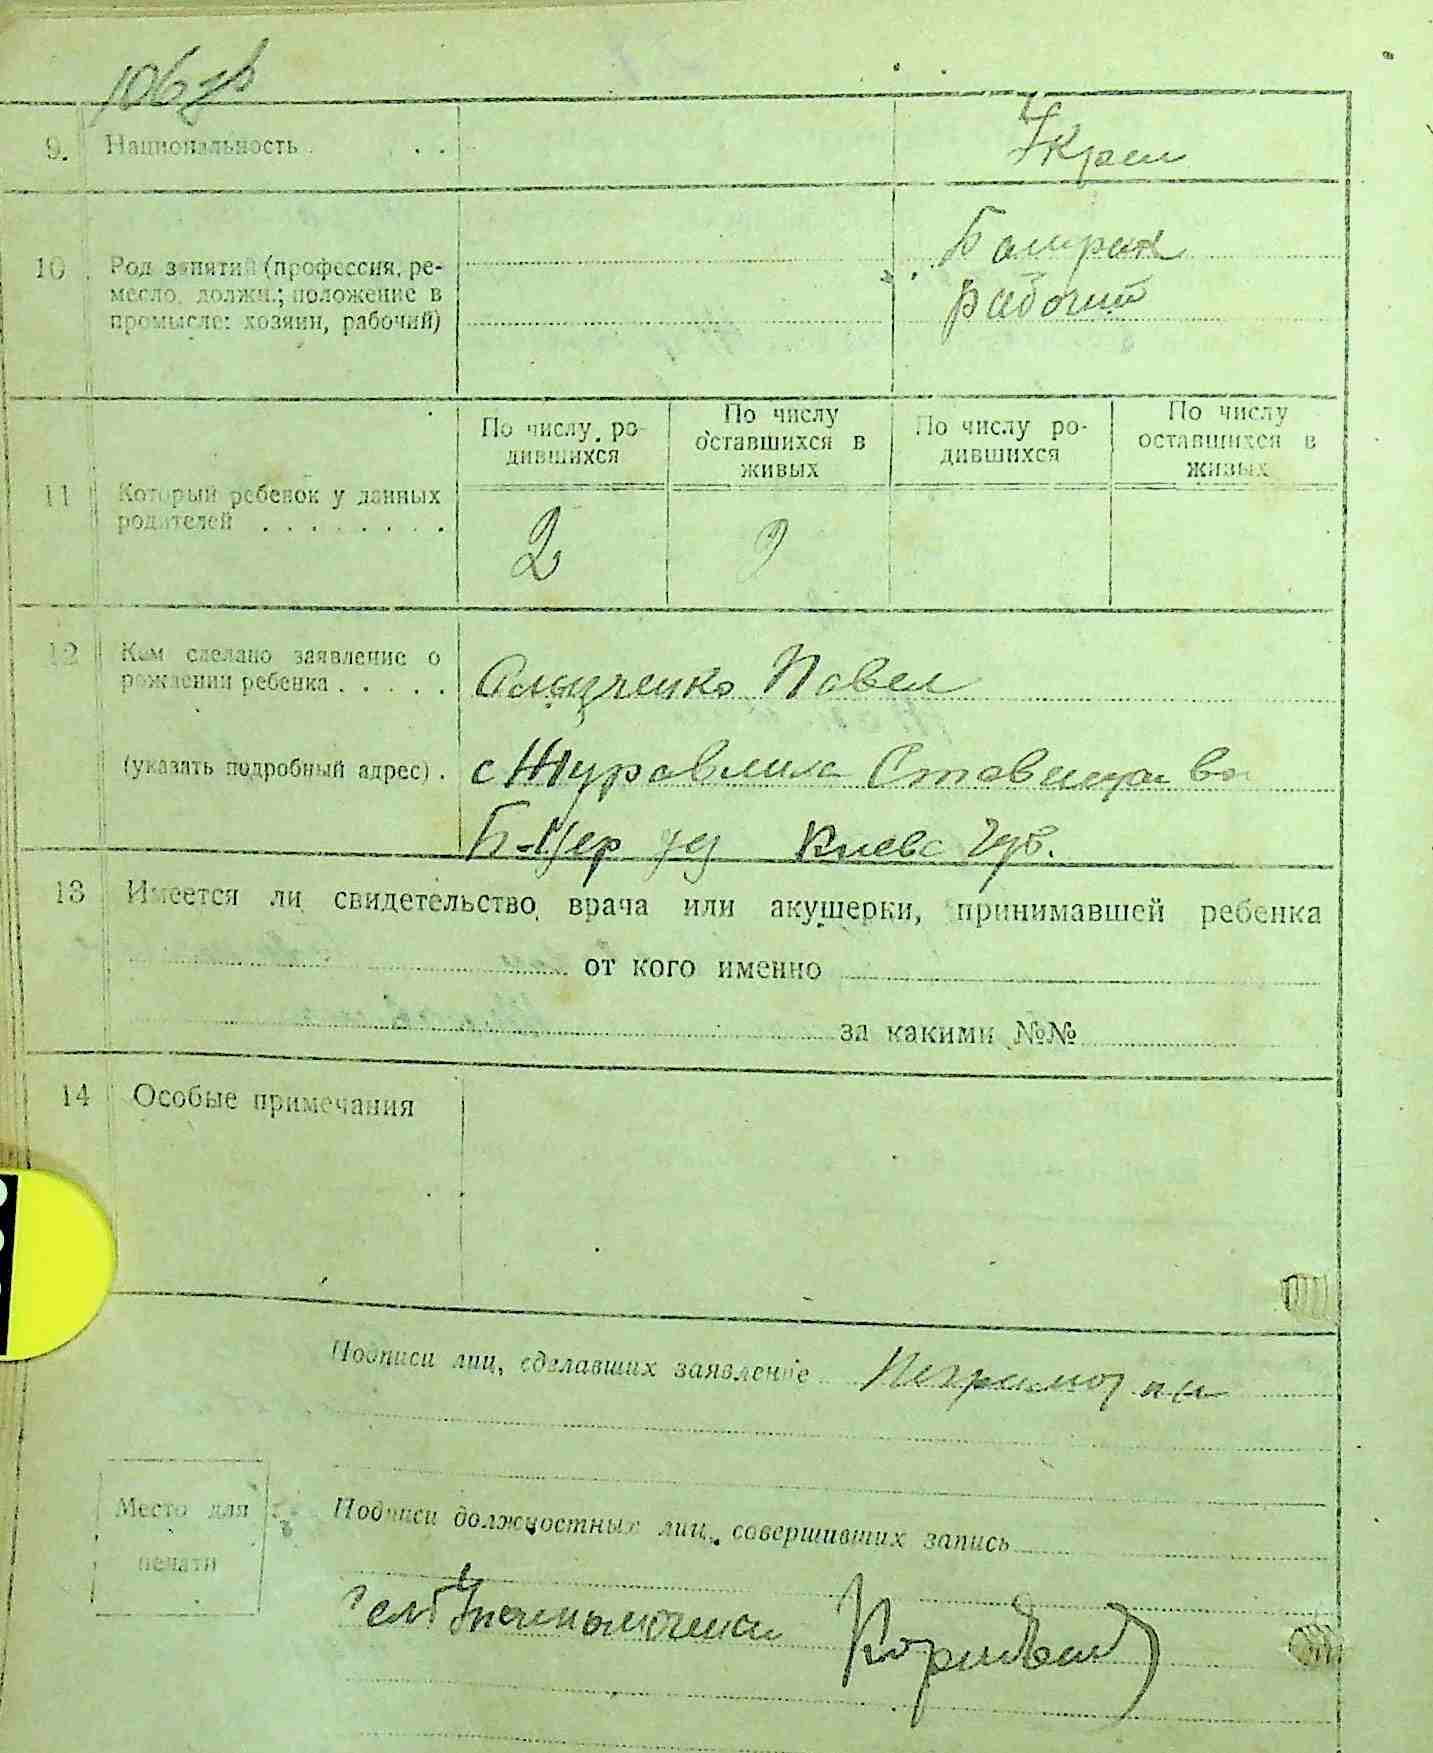 106
9. Национальность . . . Украи
10. Род занятий (профессия, ре-
месло, должн.; положение в
промысле: хозяин, рабочий)
Батрак
рабочий
По числу ро-
дившихся
По числу
оставшихся в
живых
По числу ро-
дившихся
По числу
оставшихся в
живых
11 Который ребенок у данных
родителей . . . . . . . .
2 2
12 Кем сделано заявление о
рождении ребенка . . . . . Павел
(указать подробный адрес) . с Журавлиха Ставищан во
Б-Цер уез Киевс Губ.
13 Имеется ли свидетельство врача или акушерки, принимавшей ребенка
от кого именно
за какими №№
14 Особые примечания
Подписи лиц, сделавших заявление Неграмотный
Место для
печати
Подписи должностных лиц, совершивших запись